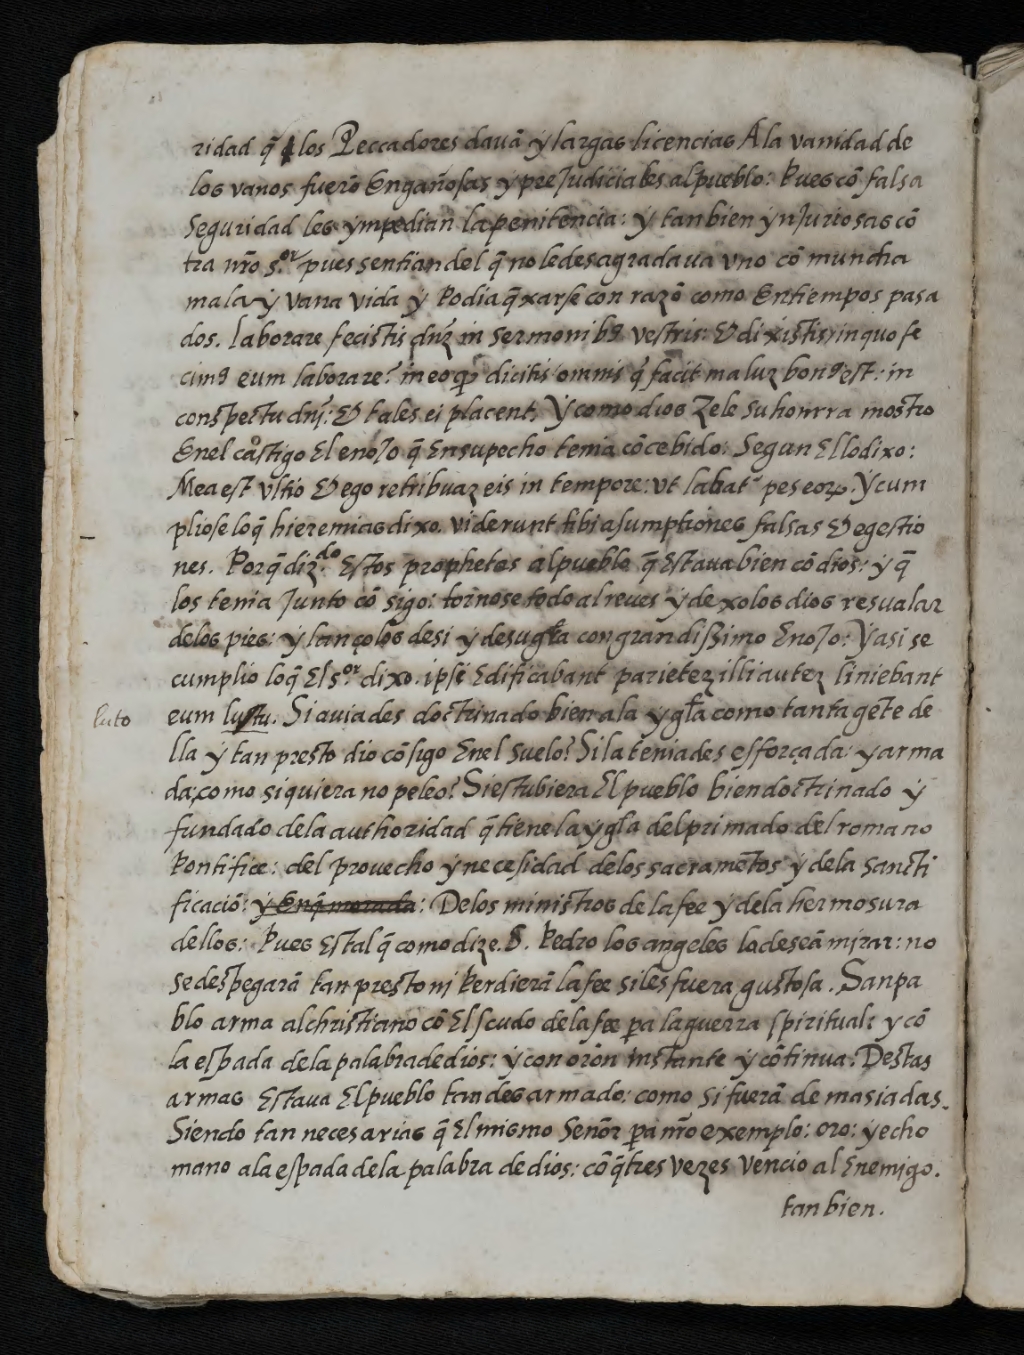 ridad q̃ a los Peccadores dauã ẏ largas licencias A la vanidad de
los vanos fuerõ Engañosas ẏ preJudiciales al pueblo: Pues cõ falsa
Seguridad les ẏmpedian la penitencia: ẏ tanbien ẏnJuriosas cõ
tra nr̃o s.or pues sentian del q̃ no le desagradaua vno cõ muncha
mala ẏ vana vida ẏ Podia q̃xarse con razõ como En tiempos pasa
dos. laborare fecistis dñz in sermonibꝰ vestris: & dixistis in quo fe
cimꝰ eum laborare? in eo qꝫ dicitis omnis q̃ facit maluz bonꝰ est: in
conspectu dnj̃: & tales ei placent, Ẏ como dios Zele su honrra mostro
En el castigo El enoJo q̃ En su pecho tenia cõcebido: Segun El lo dixo:
Mea est vltio & ego retribuaz eis in tempore: vt labat.r pes eoꝝ. Ẏ cum
pliose lo q̃ hieremias dixo. viderunt tibi asumptiones falsas & egestio
nes. Porq̃ diz.do Estos prophetas al pueblo q̃ Estaua bien cõ dios: ẏ q̃
los tenia Junto cõ sigo: tornose todo al reues ẏ dexolos dios resualar
de los pies: ẏ lançolos de si ẏ de su gr̃a con grandissimo EnoJo: Ẏ asi se
cumplio lo q̃ El s.or dixo. ipsi Edificabant parietez illi autez liniebant
luto eum lustu. Si auiades doctrinado bien a la ẏgl̃a como tanta gẽte de
lla ẏ tan presto dio cõsigo En el suelo? Si la teniades esforçada: y arma
da; como siquiera no peleo? Si estubiera El pueblo bien doctrinado ẏ
fundado de la authoridad q̃ tiene la ẏgl̃a del primado del romano
Pontifice: del prouecho ẏ necesidad de los sacramẽtos ẏ de la sancti
ficaciõ: ẏ Enq̃ morada: De los ministros de la fee ẏ de la hermosura
dellos: Pues Es tal q̃ como dize. S. Pedro los angeles la deseã mirar: no
se despegarã tan presto nj Perdierã la fee si les fuera gustosa. San pa
blo arma al christiano cõ El scudo de la fee p̃a la guerra spiritual: y cõ
la espada de la palabra de dios: ẏ con orõn instante ẏ cõtinua: Destas
armas Estaua El pueblo tan desarmado: como si fuerã demasiadas.
Siendo tan necesarias q̃ El mismo Señor p̃a nr̃o exemplo: oro: ẏ echo
mano a la espada de la palabra de dios: cõ q̃ tres vezes vencio al Enemigo.
tanbien.